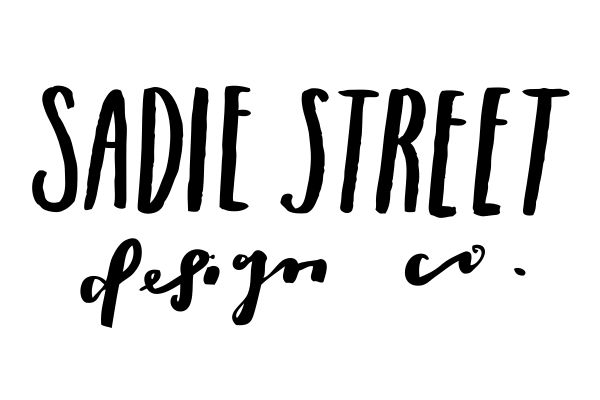 SADIE STREET
design co.